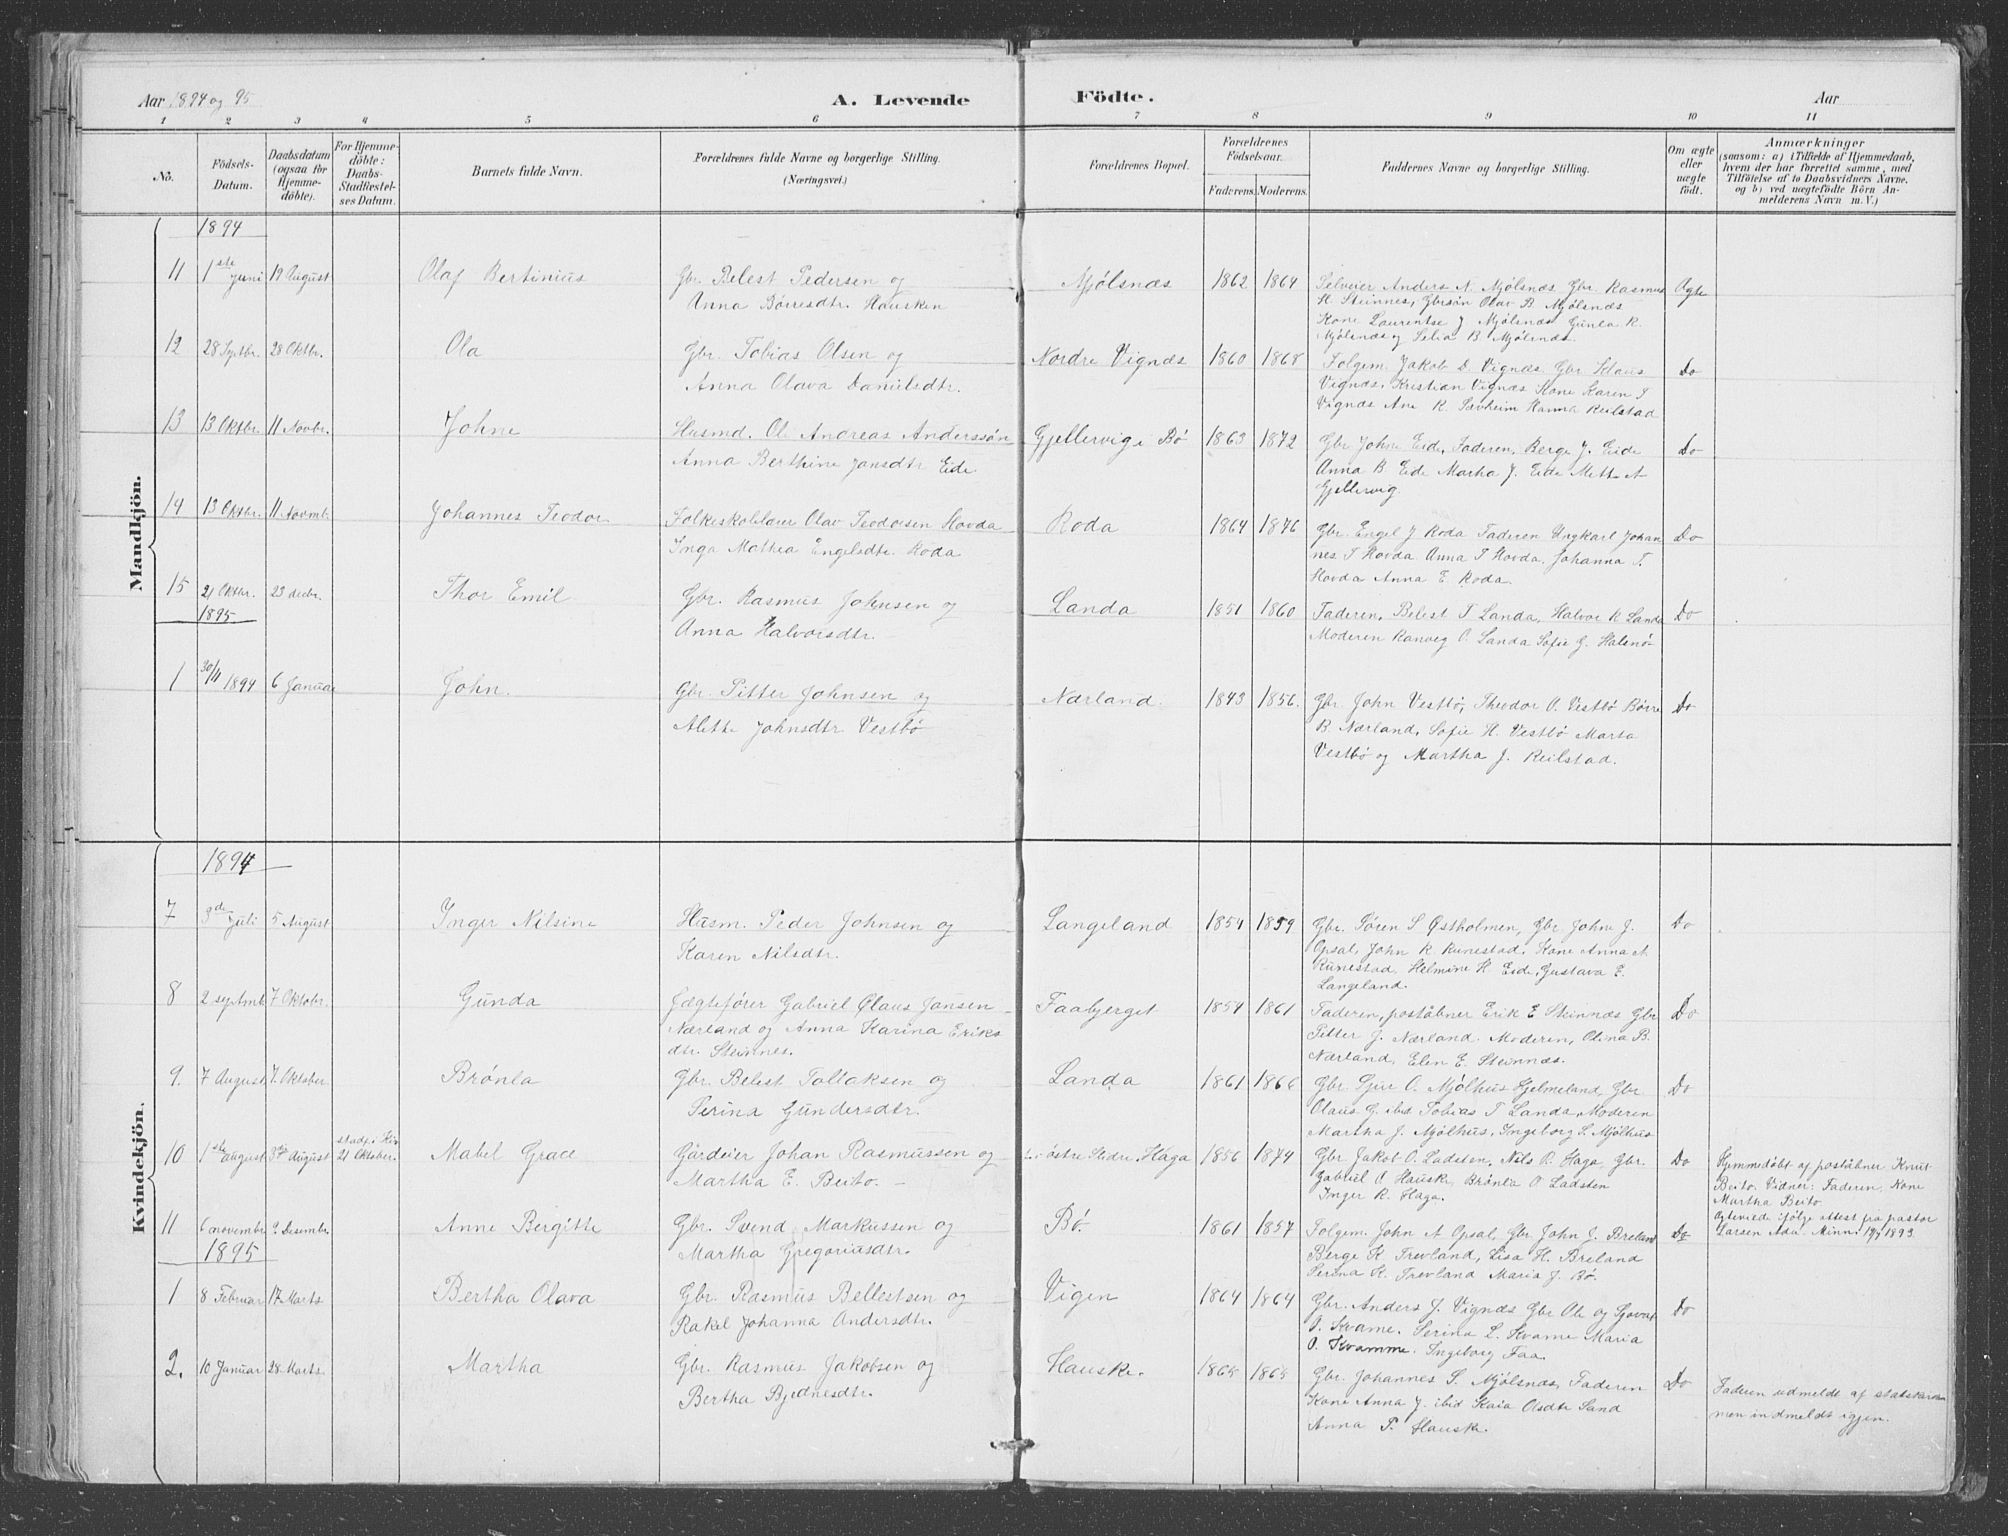 Aar 1894 og 95
A. Levende Födte.
Aar
1 2 3 4 5 6 7 8 9 10 11
No.
Födsels-Datum.
Daabsdatum (ogsaa for Hjemme-döbte).
For Hjemme-döbte: Daabs-Stadfæstel-ses Datum.
Barnets fulde Navn.
Forældrenes fulde Navne og borgerlige Stilling. (Næringsvei.)
Forældrenes Bopæl.
Forældrenes Födselsaar.
Faderens. Moderens.
Faddernes Navne og borgerlige Stilling.
Om ægte eller uægte födt.
Anmærkninger
(saasom: a) i Tilfælde af Hjemmedaab, hvem der har forrettet samme, med Tilföielse af to Daabsvidners Navne. og b) ved uægtefödte Börn An-melderens Navn m. V.)
Mandkjön.
1894
11 1ste Juni 19 August Olaf Bertinius Gbr. Belest Pedersen og Mjølsnæs 1862 1864 Selveier Anders N. Mjølsnæs Gbr. Rasmus Ægte
Anna Børresdtr. Hausken H. Steinnes, Gbrsøn Olav B. Mjølsnæs
Kone Laurentse J Mjølsnæs Gunla R.
Mjølsnæs og Selia B. Mjølsnæs.
12 28 Septbr. 28 Oktbr. Ola Gbr. Tobias Olsen og Nordre Vignæs 1860 1868 Folgem. Jakob D. Vignæs Gbr. Klaus Do
Anna Olava Danielsdtr. Vignæs, Kristian Vignæs Kone Karen T
Vignæs Ane R. Sævheim Hanna Reilstad
13 13 Oktbr. 11 Novbr. Johne Husmd. Ole Andreas Anderssøn Gjellervig i Bø 1863 1872 Gbr Johne Eide, Faderen, Berge J. Eide Do
Anna Berthine Jonsdtr Eide Anna B Eide Martha J. Eide Mette A
Gjellervig.
14 13 Oktbr. 11 Novmb. Johannes Teodor Folkeskolelærer Olav Teodorsen Hovda Roda 1864 1876 Gbr. Engel J Roda Faderen Ungkarl Johan Do
Inga Mathea Engelsdtr. Roda nes T Hovda Anna T Hovda. Johanna T.
Hovda Anna E. Roda.
15 21 Oktbr. 23 decbr. Thor Emil Gbr. Rasmus Johnsen og Landa 1851 1860 Faderen, Belest T Landa, Halvor R Landa Do
Anna Halvorsdtr. Moderen Ranveg O. Landa Sofie G. Halsnø
1895
1 30/11 1894 6 Januar John. Gbr. Pitter Johnsen og Nærland. 1843 1856. Gbr. John Vestbø, Theodor O. Vestbø Børre Do
Alette Johnsdtr Vestbø B. Nærland, Sofie H. Vestbø Marta
Vestbø og Martha J. Reilstad.
Kvindekjön.
1894
7 3de Juli 5 August Inger Nilsine Husm. Peder Johnsen og Langeland 1854 1859 Gbr. Søren S Østholmen, Gbr Johne J. Do
Karen Nilsdtr. Opsal, John R. Runestad. Kone Anna A
Runestad, Helmine H. Eide, Gustava E.
Langeland.
8 2 septmb 7 Oktobr. Gunda Fægtefører Gabriel Olaus Jansen Faabjerget 1854 1861 Faderen, poståbner Erik E Steinnæs Gbr Do
Nærland og Anna Karina Eriks Pitter J. Nærland. Moderen, Olina B.
dtr. Steinnes. Nærland, Elen E. Steinnæs.
9. 7 August. 7. Oktober. Brønla Gbr. Belest Tollaksen og Landa 1861 1866 Gbr. Sjur O. Mjølhus Hjelmeland, Gbr. Do
Serina Gundersdtr. Olaus G. ibid Tobias T Landa, Moderen
Martha J. Mjølhus, Ingeborg S. Mjølhus
10 1ste august 3die August stadf. i Kir 21 Oktober. Mabel Grace Gårdeier Johan Rasmussen og østre Slidre, Haga 1856 1874 Gbr Jakob O. Ladsten, Nils R. Haga, Gbr. Do Hjemmedøbt af poståbner Knut
Martha E. Beito. Gabriel O Hauske, Brønla O Ladsten Beito. Vidner: Faderen, Kone
Inger R. Haga. Martha Beito
Ægteviede ifølge attest fra pastor
Larsen Ada Minn. 19/7 1893.
11 6 november 9. Desembr. Anne Bergitte Gbr. Svend Markussen og Bø 1861 1857 Folgem. John A Opsal, Gbr. John J. Breland Do
Martha Gregoriasdtr. Berge K Trevland, Lisa H. Breland
Serina K. Trevland Maria J. Bø.
1895
1 8 Februar 17 Marts Bertha Olava Gbr. Rasmus Bellestsen og Vigen 1864 1864 Gbr. Anders J. Vignæs Gbr Ole og Do
Rakel Johanna Andersdtr. O. Kvame. Serina L. Kvame Maria
O. Kvamme. Ingeborg Faa.
2. 10 Januar 28 Marts. Martha Gbr. Rasmus Jakobsen og Hauske. 1865 1865 Gbr. Johannes S. Mjølsnæs, Faderen Do Faderen udmeldt af statskirken
Bertha Bjednesdtr. Kone Anna J. ibid Kaia Olsdtr Sand men indmeldt igjen.
Anna P. Hauske.